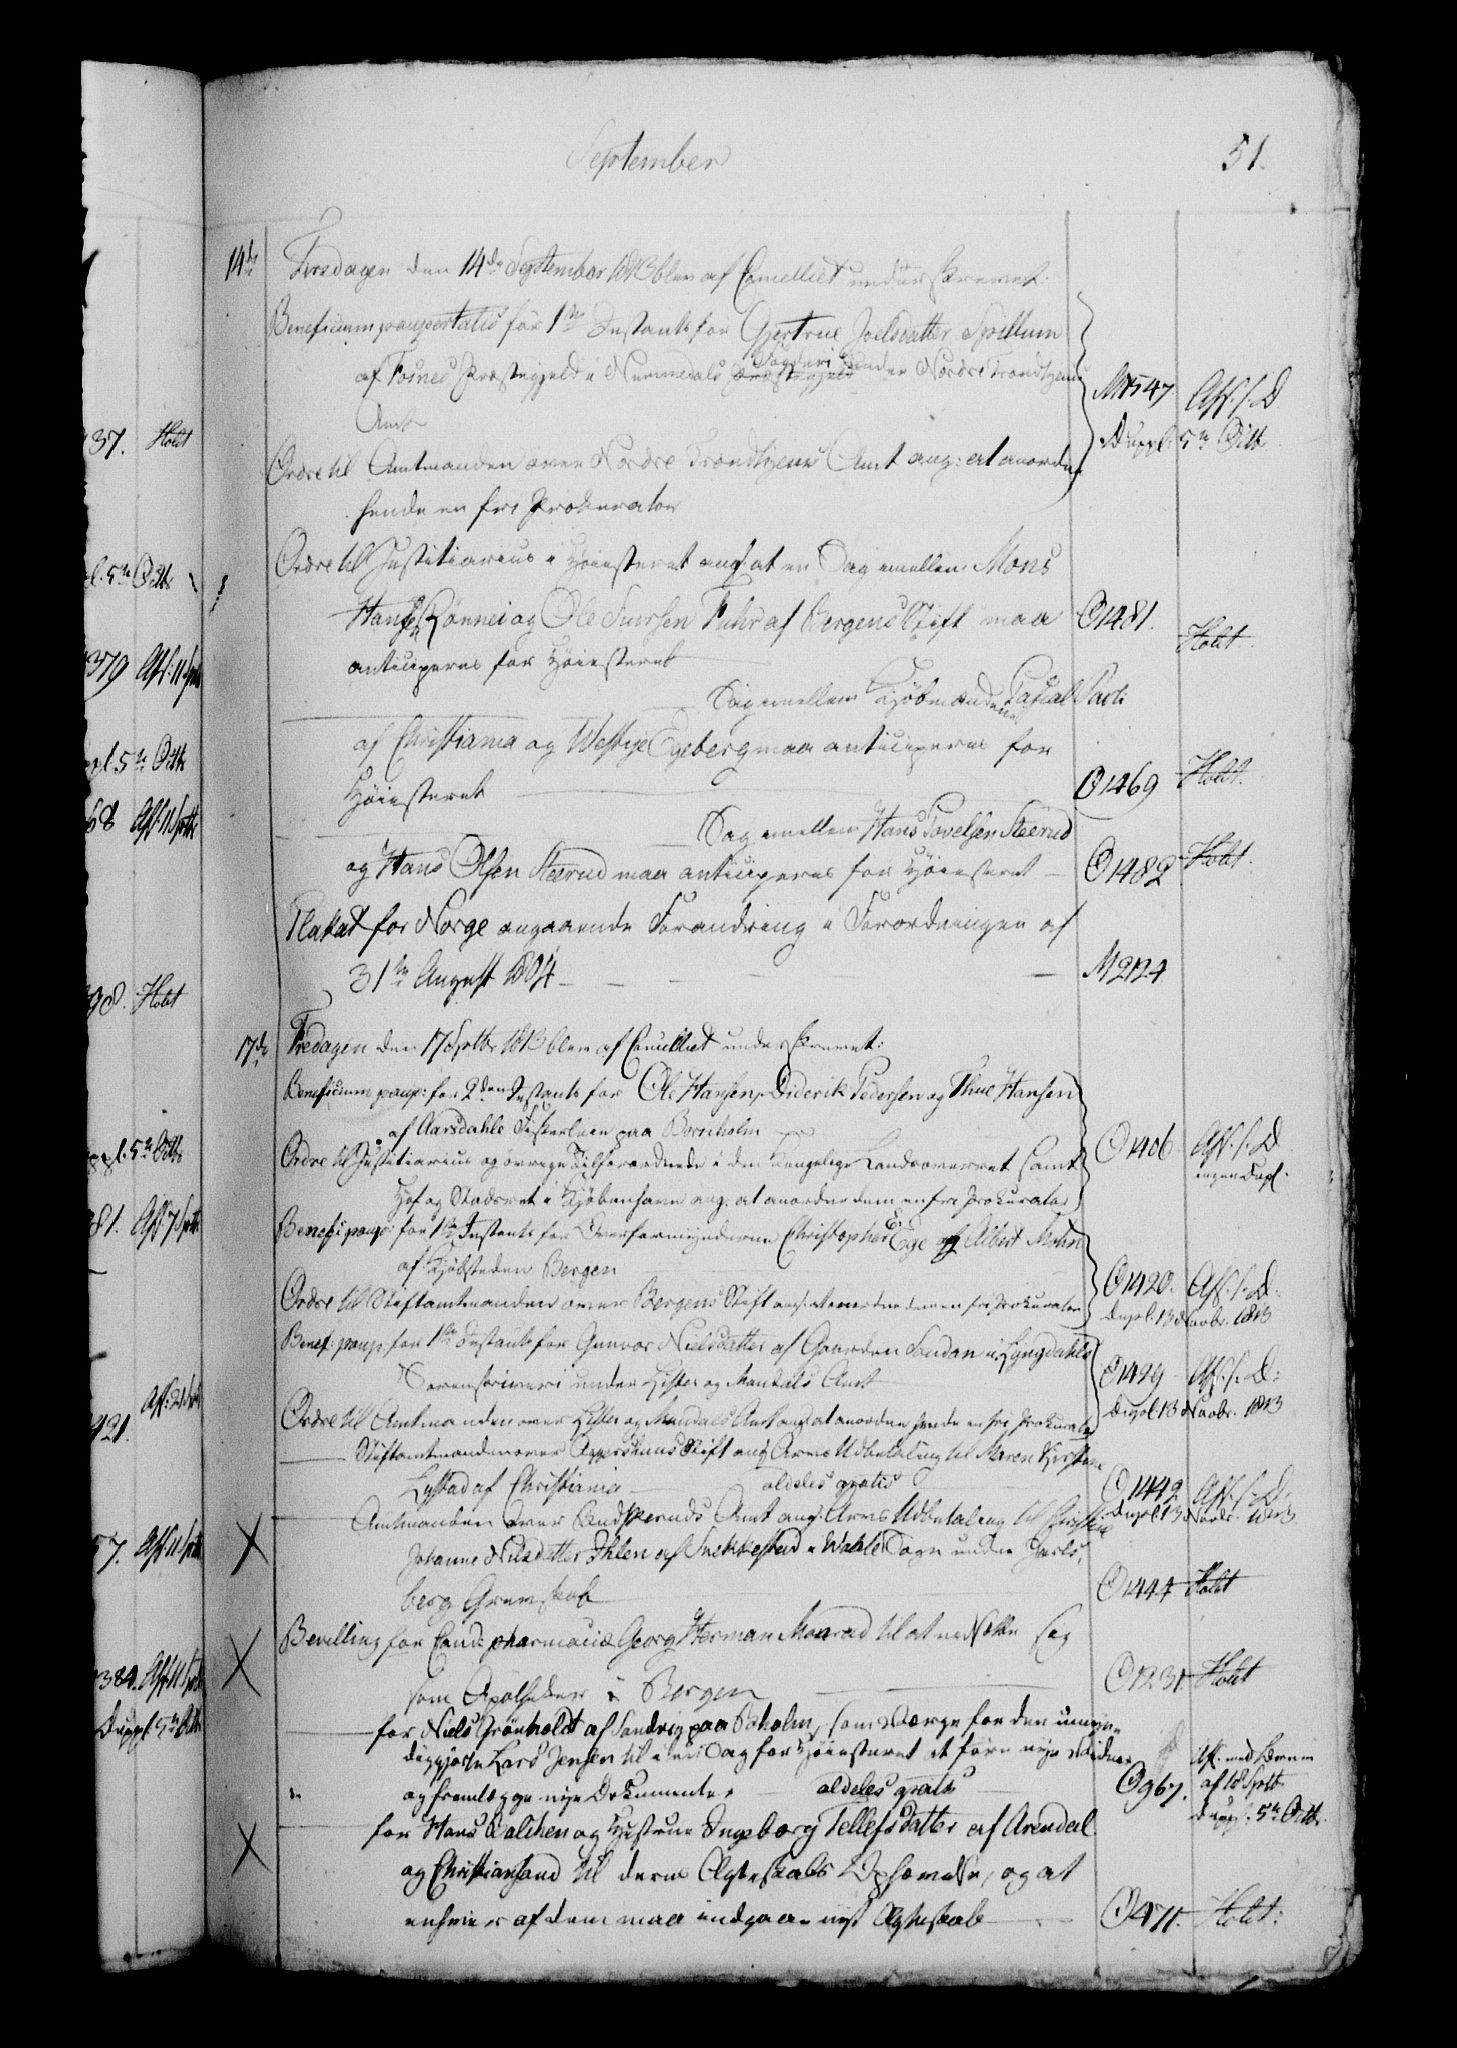 September
51.
14de Tirsdagen den 14de September 1813 blev af Cancelliet underskrevet.
Beneficium paupertatis for 1ste Instants for Gjertrue Joelsdatter Spillum
af Fosnes Præstegjeld i Nummedals Fogderi under Nordre Trondhjems
Amt
M1547 Afs. s. D.
Duppl. 5te Octbr
Ordre til Amtmanden over Nordre Trondhjems Amt ang: at anordne
hende en fri Prokurator
Ordre til Justitiarius i Høiesteret ang. at en Sag imellem Mons
Hansen Rønnei og Ole Fuhr af Bergens Stift maa
O1481.
Holdt.
anticiperes for Høiesteret
Sag imellem Kjøbmændene Pascal Paoli
af Christiania og Westye Egeberg maa anticiperes for
Høiesteret
O1469 Holdt.
Sag imellem Hans Povelsen Steerud
og Hans Olsen Steerud maa anticiperes for Høiesteret
O1482 Holdt.
Plakat for Norge angaaende Forandring i Forordningen af
31te August 1804
M2124
17de Fredagen den 17 Septbr 1813 blev af Cancelliet underskrevet:
Beneficium paup: for 2den Instants for Ole Hansen, Diderik Pedersen og Thue Hansen
af Aarsdahle Fiskerleie paa Bornholm
O1406 Afs. s. D
ingen Dupl.
Ordre til Justitiarius og øvrige Tilforordnede i den Kongelige Landsoverret samt
Hof og Stadsret i Kjøbenhavn ang: at anordne dem en fri Prokurator
Benef: paup: for 1ste Instants for Overformynderne Christopher Ege og Albert Mohn
af Kjøbsteden Bergen
O1420. Afs. s. D.
Dupl. 13 Novbr. 1813
Ordre til Stiftamtmanden over Bergens Stift ang. at anordne dem en fri Prokurator
Benef: paup for 1ste Instants for Gunvor Nielsdatter af Gaarden Sandan i Lyngdahls
Sorenskriveri under Lister og Mandals Amt
O1429 Afs. s. D.
Dupl. 13 Novbr. 1813
Ordre til Amtmanden over Lister og Mandals Amt ang. at anordne hende en fri Prokurator
Stiftamtmanden over Aggershuus Stift ang Arvs Udbetaling til Maren Kirstine
Lystad af Christiania aldeles gratis
O1442 Afs. s. D.
Dupl. 13 Novbr. 1813
Amtmanden over Buskeruds Amt ang. Arvs Udbetaling til
Johanne Nilsdatter Ihlen af Snekkestad i Waale Sogn under Jarls,
berg Grevskab
O1444 Holdt
Bevilling for Cand: pharmaciæ Georg Herman Monrad til at nedsætte sig
som Apotheker i Bergen
O1231 Holdt
for Niels Grønholdt af Sandvig paa Boholm, som Værge for den umyn-
diggjorte Lars Jensen til i en Sag for Høiesteret at føre nye Vidner
og fremlægge nye Dokumenter aldeles gratis
O967. Afs. med
af 18 Septbr
Duppl. 5te Octbr.
for Hans Balchen og Hustrue Ingeborg Tellefsdatter af Arendal
og Christiansand til deres Ægteskabs Ophævelse, og at
enhver af dem maa indgaae nyt Ægteskab
O471. Holdt.
37. Holdt
pl. 5te Octbr
379 Afs: 11 Septbr
ppl. 5te Octbr
68 Afs. 11 Septbr
98. Holdt
ppl. 5te Octbr
381. Afs. 7 Septbr
421. Afs: 21 Septbr
57. Afs. 11 Septbr
384. Afs. 11 Septbr
Duppl. 5te Octbr